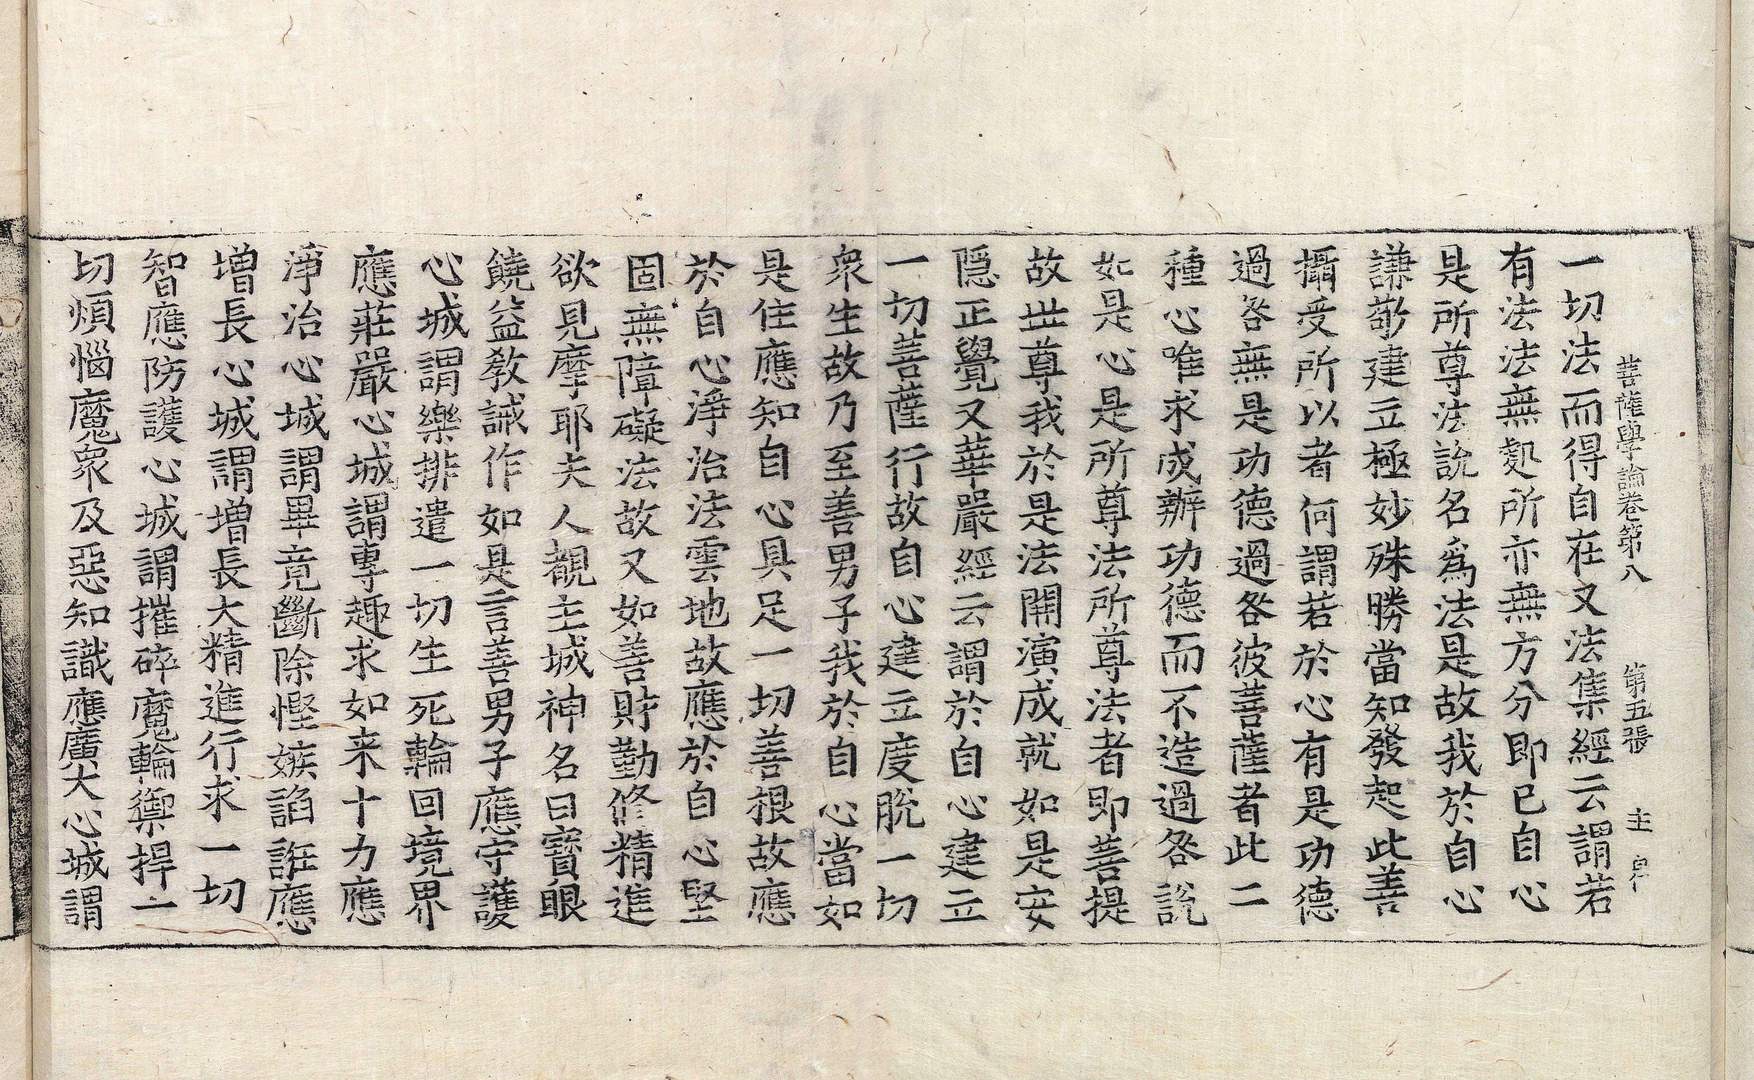 菩薩學論卷第八 第五張 主
一切法而得自在又法集經云謂若
有法法無處所亦無方分即已自心
是所尊法說名為法是故我於自心
謙敬建立極妙殊勝當知發起此善
攝受所以者何謂若於心有是功德
過咎無是功德過咎彼菩薩者此二
種心唯求成辦功德而不造過咎說
如是心是所尊法所尊法者即菩提
故丗尊我於是法開演成就如是安
隱正覺又華嚴經云謂於自心建立
一切菩薩行故自心建立度脫一切
衆生故乃至善男子我於自心當如
是住應知自心具足一切善根故應
於自心淨治法雲地故應於自心堅
固無障礙法故又如善財勤修精進
欲見摩耶夫人覩主城神名曰寶眼
饒益教誡作如是言善男子應守護
心城謂樂排遣一切生死輪回境界
應莊嚴心城謂專趣求如来十力應
淨治心城謂畢竟斷除慳嫉諂誑應
增長心城謂增長大精進行求一切
智應防護心城謂摧碎魔輪禦捍一
切煩惱魔衆及惡知識應廣大心城謂